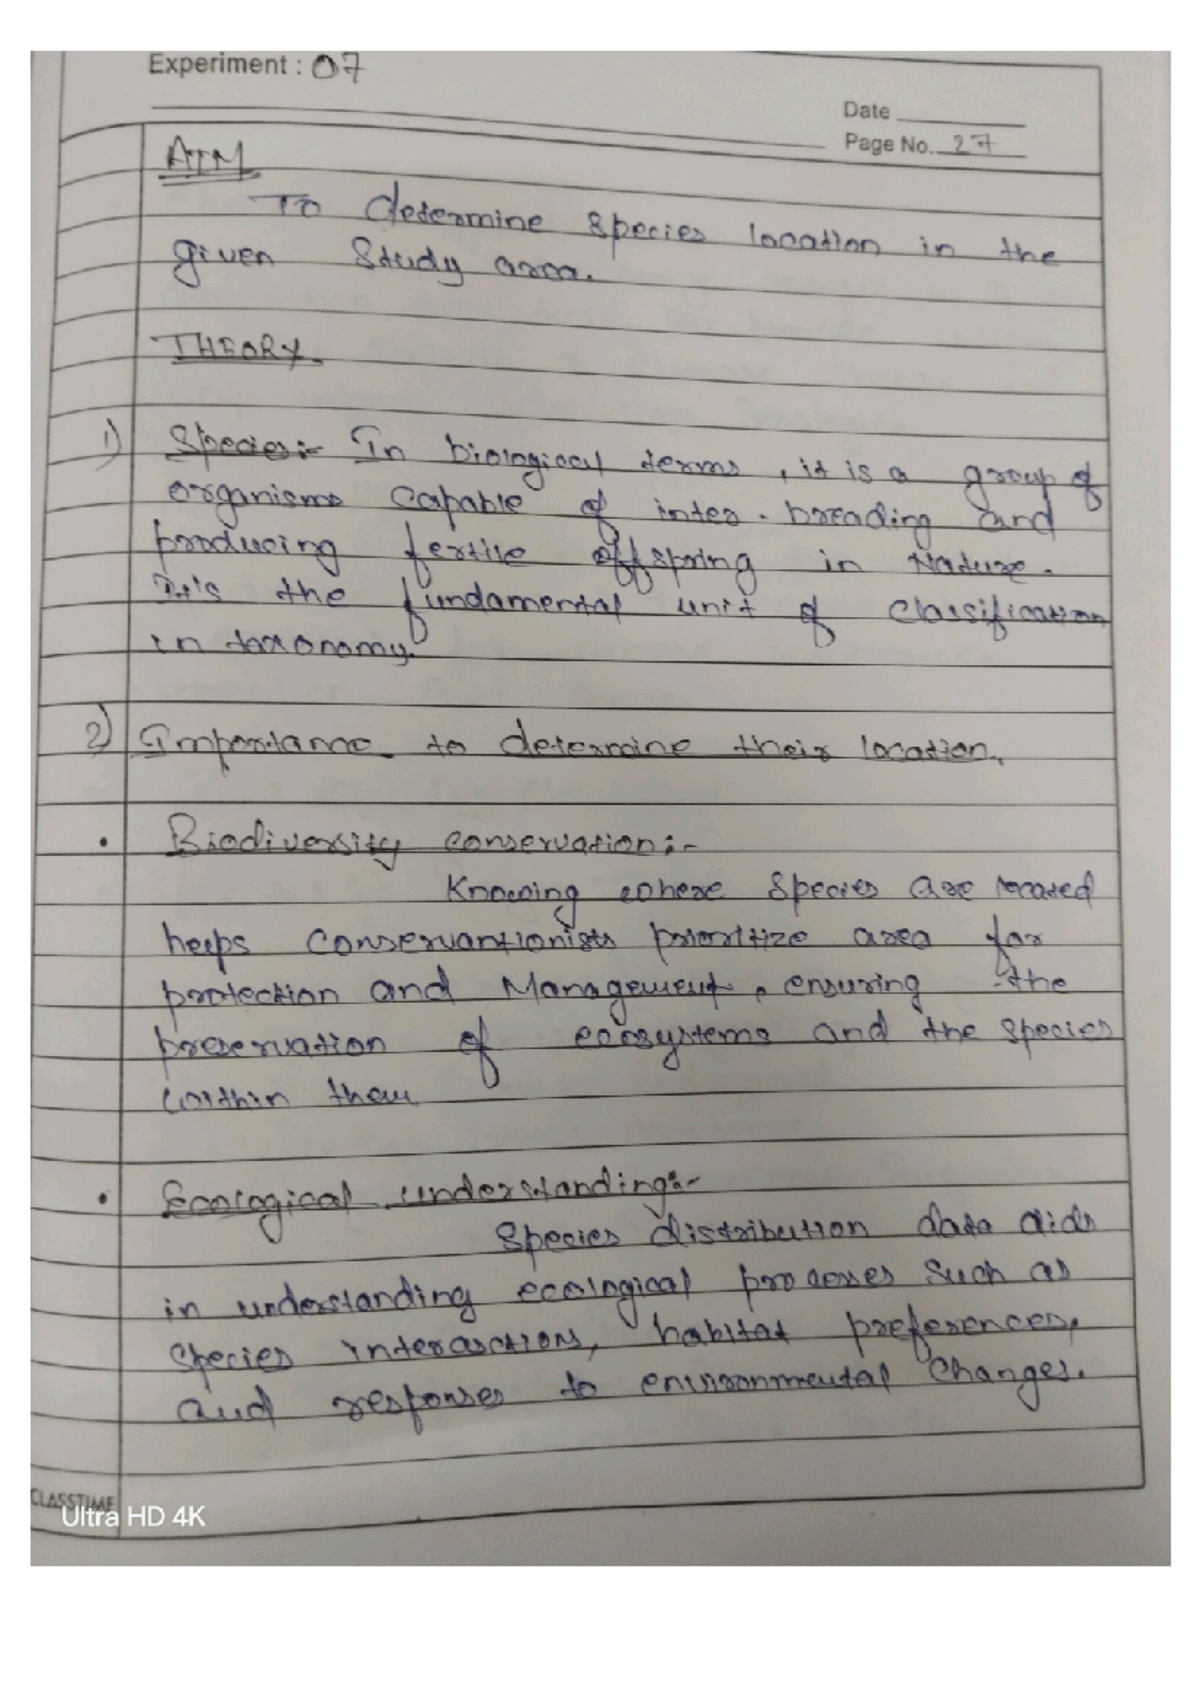 Experiment : 07
Date
Page No. 27
AIM
To determine species location in the
given study area.
THEORY.
1) Species:- In biological terms, it is a group of
organisms capable of inter-breading and
producing fertile offspring in Nature.
It's the fundamental unit of classification
in taxonomy.
2) Importance to determine their location.
• Biodiversity conservation:-
Knowing where species are located
helps conservantionists prioritize area for
protection and Management, ensuring the
preservation of ecosystems and the species
within them
• Ecological understanding:-
Species distribution data aids
in understanding ecological processes such as
species interasctions, habitat preferences,
and responses to environmental changes.
CLASSTIME
Ultra HD 4K